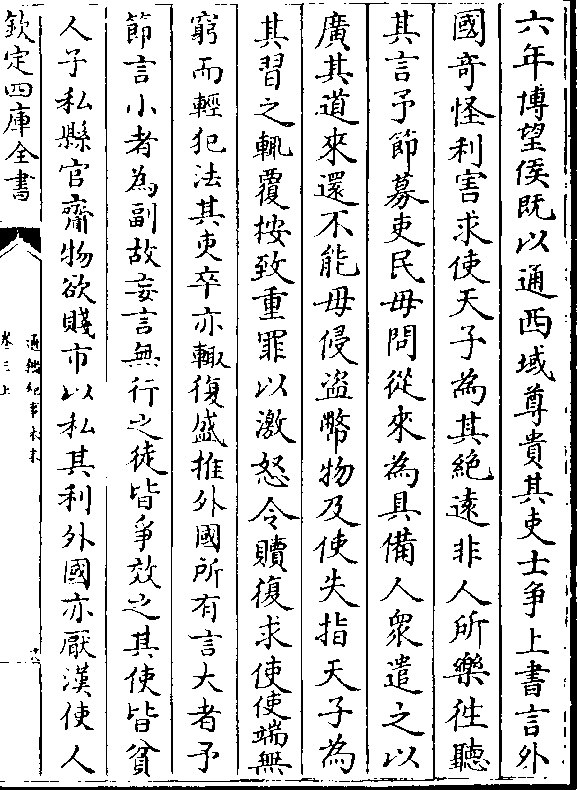 六年博望侯既以通西域尊貴其吏士爭上書言外
國奇怪利害求使天子為其絶遠非人所樂徃聽
其言予節募吏民毋問從來為具備人衆遣之以
廣其道來還不能毋侵盜幣物及使失指天子為
其習之輒覆按致重罪以激怒令贖復求使使端無
窮而輕犯法其吏卒亦輙復盛推外國所有言大者予
節言小者為副故妄言無行之徒皆爭效之其使皆貧
人子私縣官齎物欲賤市以私其利外國亦厭漢使人
欽定四庫全書
通鑑紀事本末
卷三上